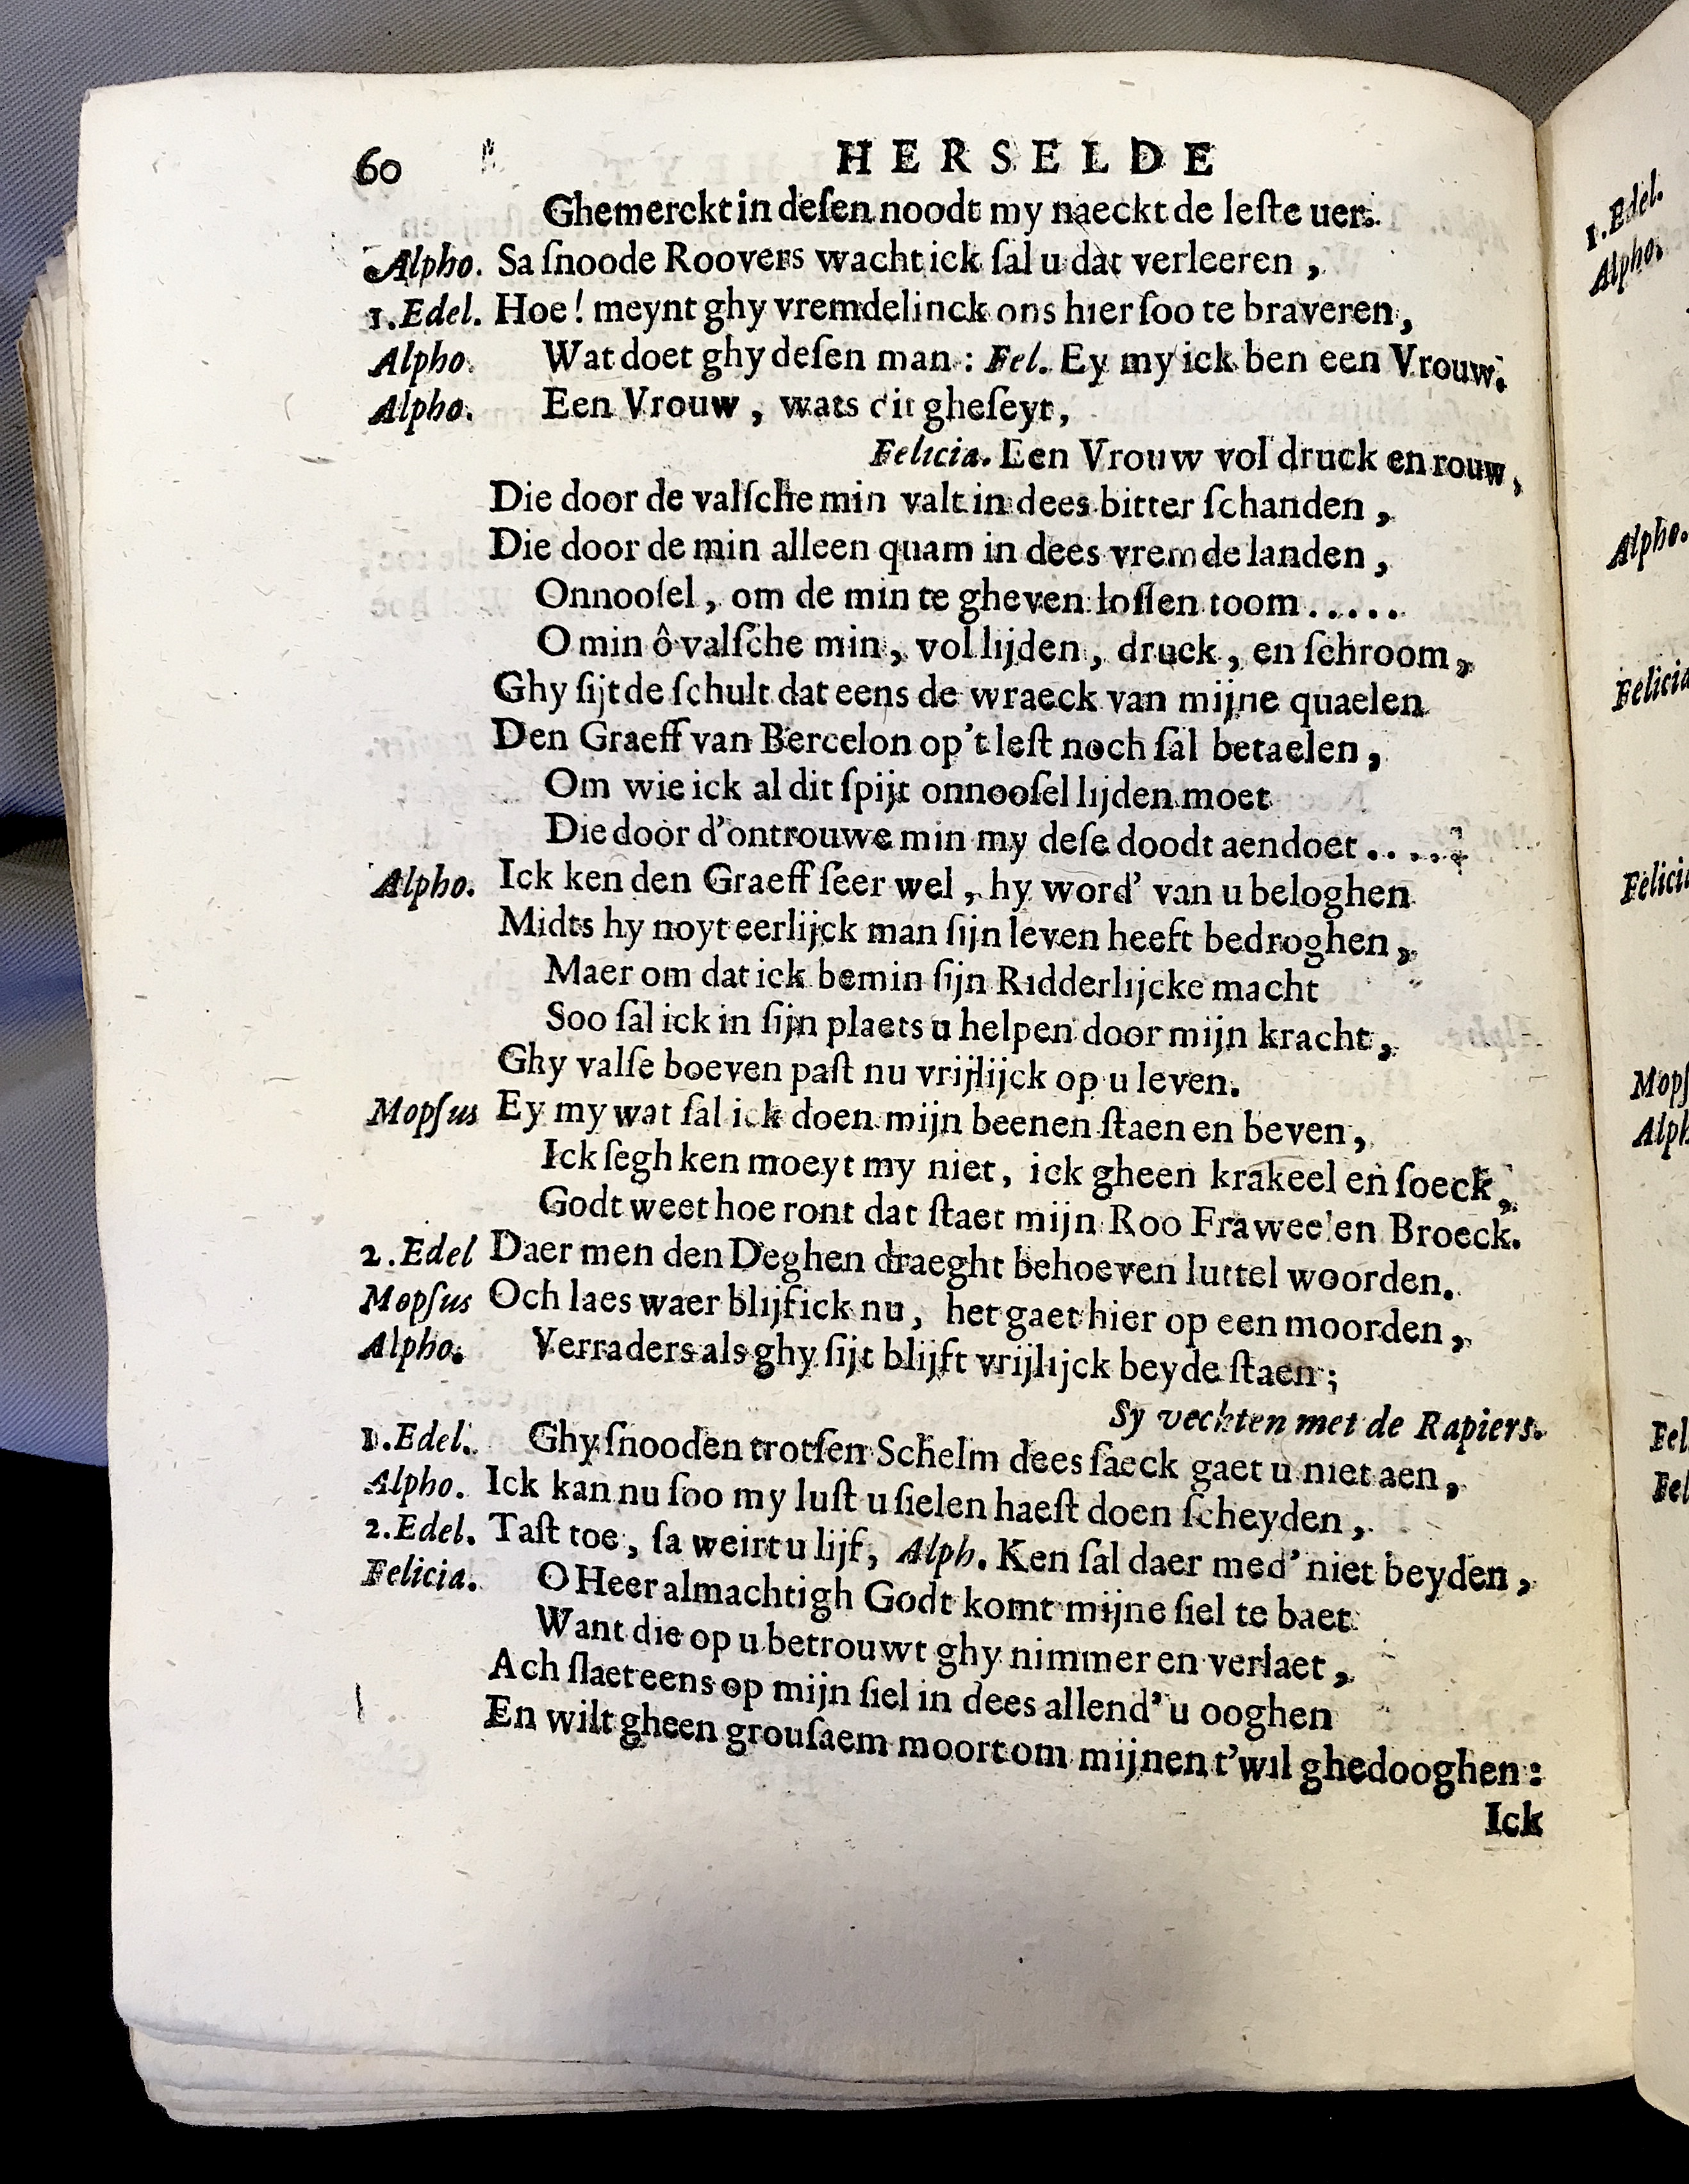 60 HERSELDE
Ghemerckt in deſen noodt my naeckt de leſte uer.
Alpho. Sa ſnoode Roovers wacht ick ſal u dat verleeren,
1.Edel. Hoe! meynt ghy vremdelinck ons hier ſoo te braveren,
Alpho. Wat doet ghy deſen man: Fel. Ey my ick ben een Vrouw.
Alpho. Een Vrouw, wats dit gheſeyt,
Felicia. Een Vrouw vol druck en rouw,
Die door de valſche min valt in dees bitter ſchanden,
Die door de min alleen quam in dees vremde landen,
Onnooſel, om de min te gheven loſſen toom.....
O min ô valſche min, vol lijden, druck, en ſchroom,
Ghy ſijt de ſchult dat eens de wraeck van mijne quaelen
Den Graeff van Bercelon op't leſt noch ſal betaelen,
Om wie ick al dit ſpijt onnooſel lijden moet
Die door d'ontrouwe min my deſe doodt aendoet.....
Alpho. Ick ken den Graeff ſeer wel, hy word' van u beloghen
Midts hy noyt eerlijck man ſijn leven heeft bedroghen,
Maer om dat ick bemin ſijn Ridderlijcke macht
Soo ſal ick in ſijn plaets u helpen door mijn kracht,
Ghy valſe boeven paſt nu vrijlijck op u leven.
Mopſus Ey my wat ſal ick doen mijn beenen ſtaen en beven,
Ick ſegh ken moeyt my niet, ick gheen krakeel en ſoeck,
Godt weet hoe ront dat ſtaet mijn Roo Fraweel'en Broeck.
2.Edel Daer men den Deghen draeght behoeven luttel woorden.
Mopſus Och laes waer blijf ick nu, het gaet hier op een moorden,
Alpho. Verraders als ghy ſijt blijft vrijlijck beyde ſtaen;
Sy vechten met de Rapiers.
1.Edel. Ghy ſnooden trotſen Schelm dees ſaeck gaet u niet aen,
Alpho. Ick kan nu ſoo my luſt u ſielen haeſt doen ſcheyden,
2.Edel. Taſt toe, ſa weirt u lijf, Alph. Ken ſal daer med' niet beyden,
Felicia. O Heer almachtigh Godt komt mijne ſiel te baet
Want die op u betrouwt ghy nimmer en verlaet,
Ach ſlaet eens op mijn ſiel in dees allend' u ooghen
En wilt gheen grouſaem moort om mijnen t'wil ghedooghen:
Ick
1.Edel.
Alpho.
Alpho.
Felicia
Felici
Mopſ
Alph
Fel
Fel